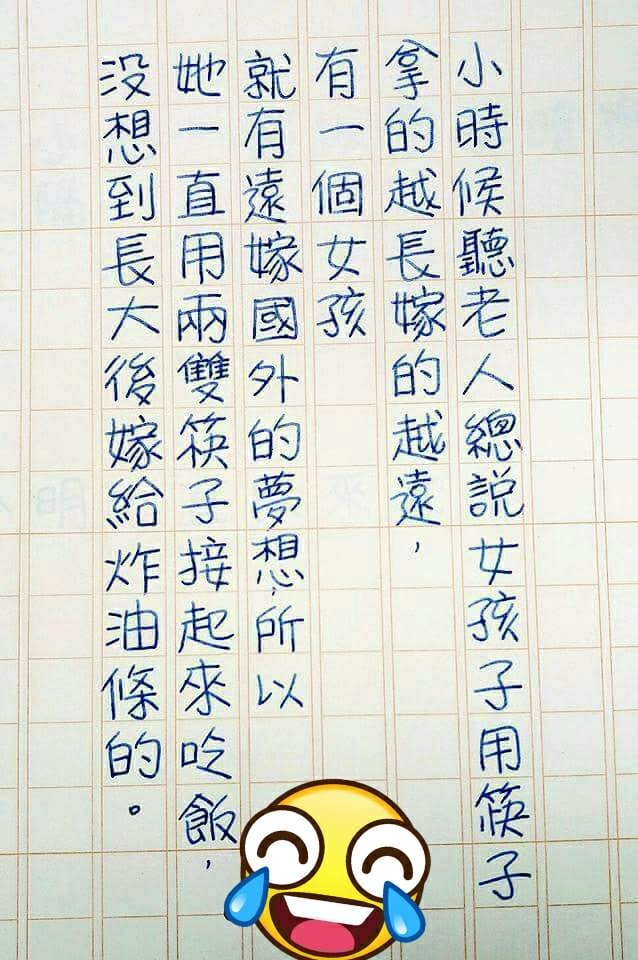 小時候聽老人總說女孩子用筷子
拿的越長嫁的越遠,
有一個女孩
就有遠嫁國外的夢想,所以
她一直用兩雙筷子接起來吃飯,
没想到長大後嫁給炸油條的。